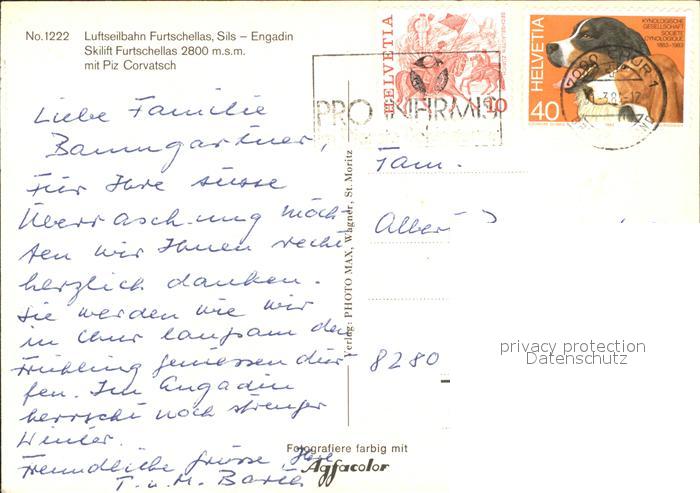 No. 1222 Luftseilbahn Furtschellas, Sils – Engadin
Skilift Furtschellas 2800 m.s.m.
mit Piz Corvatsch
Liebe Familie
Baumgartner,
Für Ihre süsse
Überraschung möch-
ten wir Ihnen recht
herzlich danken.
Sie werden wie wir
in Chur langsam den
Frühling geniessen dür-
fen. Im Engadin
herrscht noch strenger
Winter.
Freundliche Grüsse
T. u. M.
Verlag: PHOTO MAX, Wagner, St. Moritz
Fotografiere farbig mit
Agfacolor
HELVETIA
10
HELVETIA
40
KYNOLOGISCHE
GESELLSCHAFT
SOCIÉTÉ
CYNOLOGIQUE
1883-1983
PRO INFIRMIS
7000 CHUR 1
Fam.
Albert
8280
privacy protection
Datenschutz